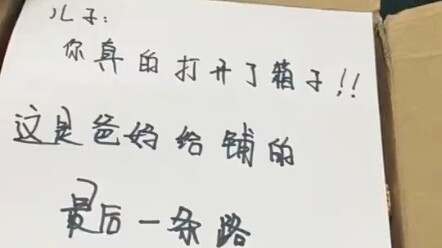 儿子:
你真的打开了箱子!!
这是爸妈给铺的
最后一条路